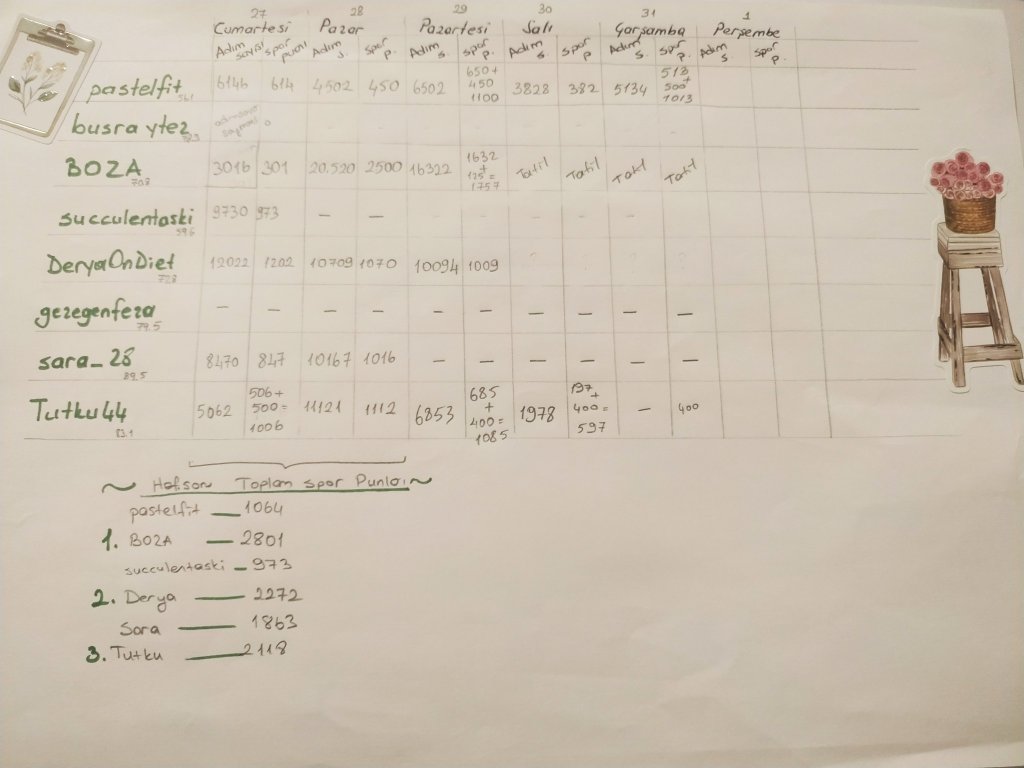 27 28 29 30 31 1
Cumartesi Pazar Pazartesi Salı Çarşamba Perşembe
Adım sayısı spor puanı Adım s. spor p. Adım s. spor p. Adım s. spor p. Adım s. spor p. Adım s. spor p.
pastelfit 6146 614 4502 450 6502 650+ 450 1100 3828 382 5134 513 + 500 1013
busra ytez - - - -
BOZA 70.8 3016 301 20.520 2500 16322 1632 + 125 = 1757 Tatil Tatil Tatil Tatil
succulentaski 59.6 9730 973 — — - - - - -
DeryaOnDiet 12022 1202 10709 1070 10094 1009 ? ? ? ?
gezegenfeza 79.5 — — — — — — — — — —
sara_28 89.5 8470 847 10167 1016 — — — — — —
Tutku44 83.1 5062 506+ 500= 1006 11121 1112 6853 685 + 400= 1085 1978 197 + 400= 597 — 400
~ Haf.son Toplam spor Punları ~
pastelfit — 1064
1. BOZA — 2801
succulentaski — 973
2. Derya — 2272
Sara — 1863
3. Tutku — 2118